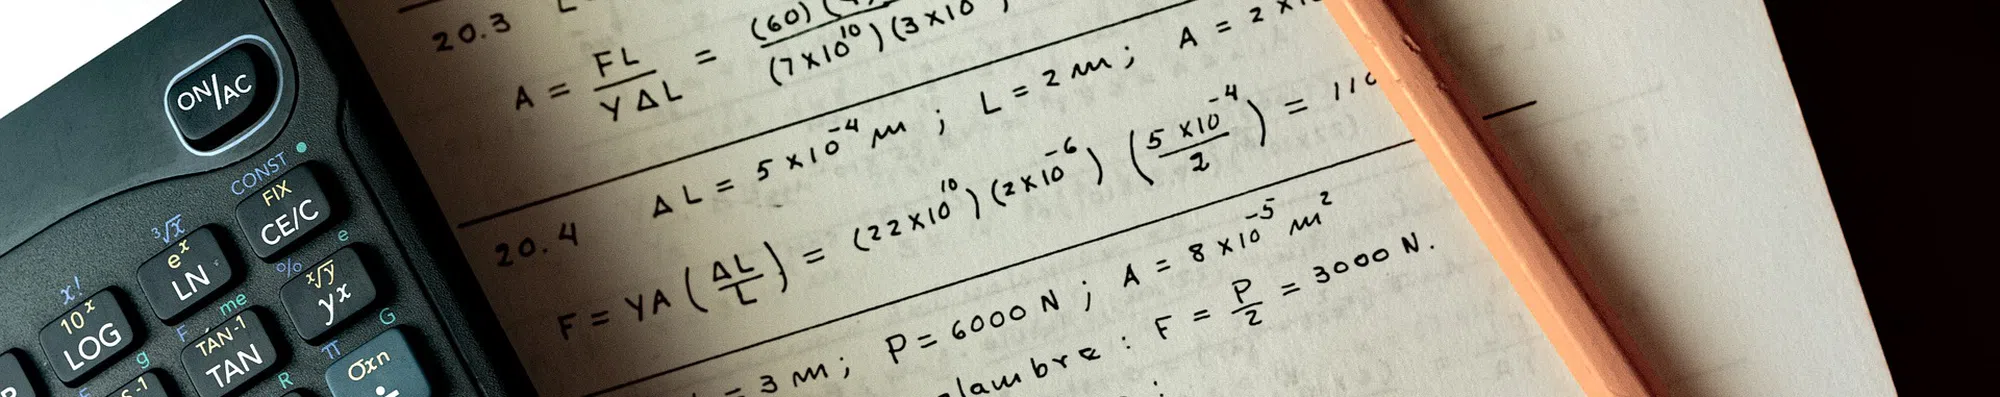 ON/AC
CONST
FIX
CE/C
³√x
eˣ
LN
e
% ˣ√y
yˣ
x!
10ˣ
LOG
F me
TAN-1
TAN
G
π
σxn
÷
g
R
20.3
A = FL / Y ΔL = (60) / (7 × 10¹⁰)(3 × 10
ΔL = 5 × 10⁻⁴ m ; L = 2 m ; A = 2 ×
20.4
F = YA (ΔL / L) = (22 × 10¹⁰)(2 × 10⁻⁶) (5 × 10⁻⁴ / 2) = 110
= 3 m ; P = 6000 N ; A = 8 × 10⁻⁵ m²
lambre : F = P / 2 = 3000 N.